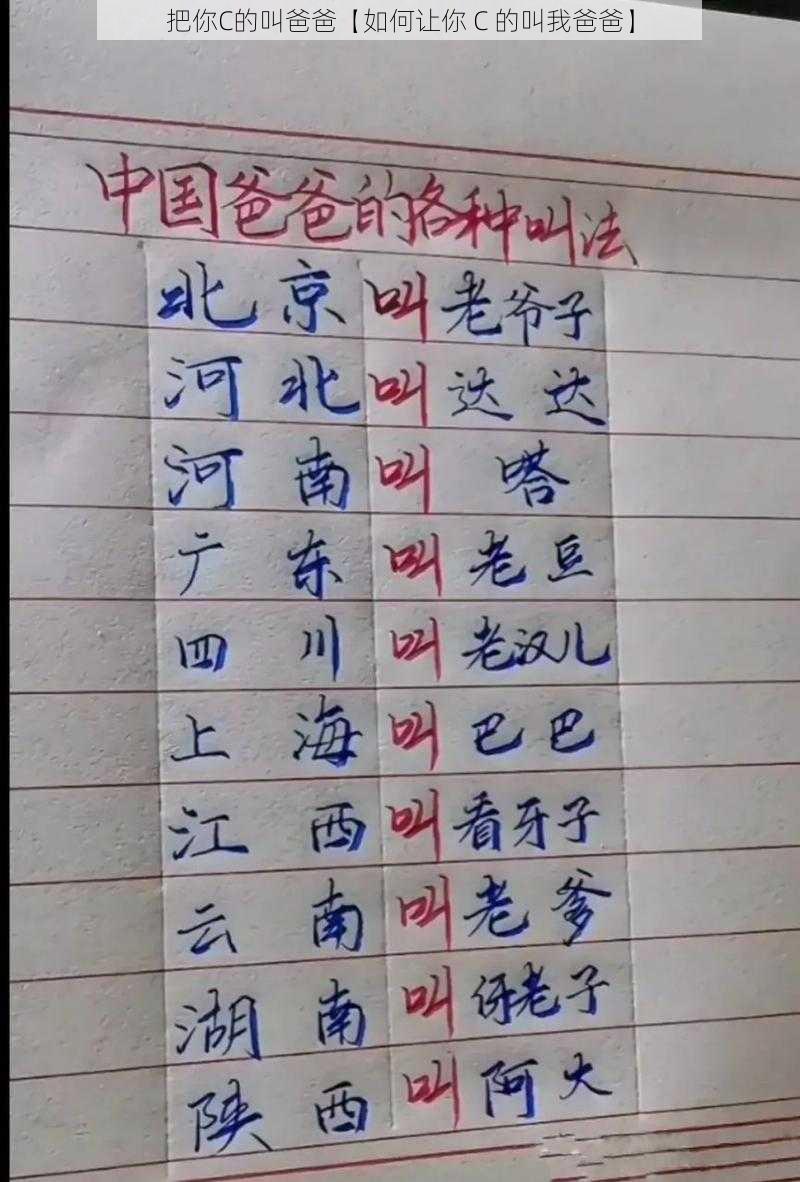 把你C的叫爸爸【如何让你 C 的叫我爸爸】
中国爸爸的各种叫法
北京叫老爷子
河北叫达达
河南叫嗒
广东叫老豆
四川叫老汉儿
上海叫巴巴
江西叫看牙子
云南叫老爹
湖南叫伢老子
陕西叫阿大